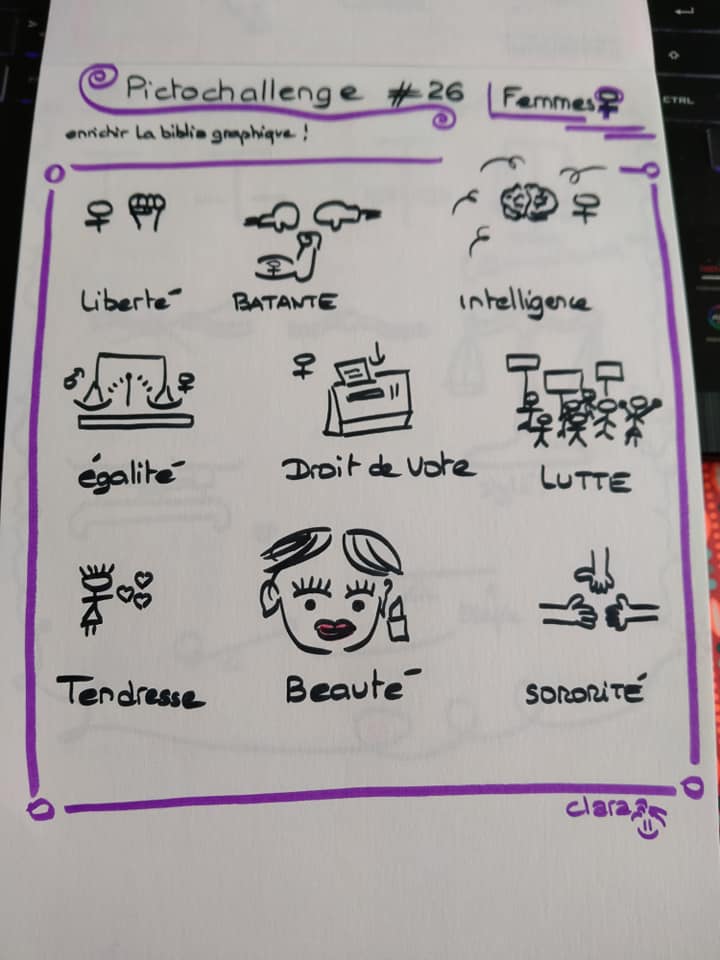 Pictochallenge #26
Femmes
enrichir la biblio graphique !
Liberté
BATANTE
intelligence
égalité
Droit de vote
LUTTE
Tendresse
Beauté
SORORITÉ
clara
CTRL